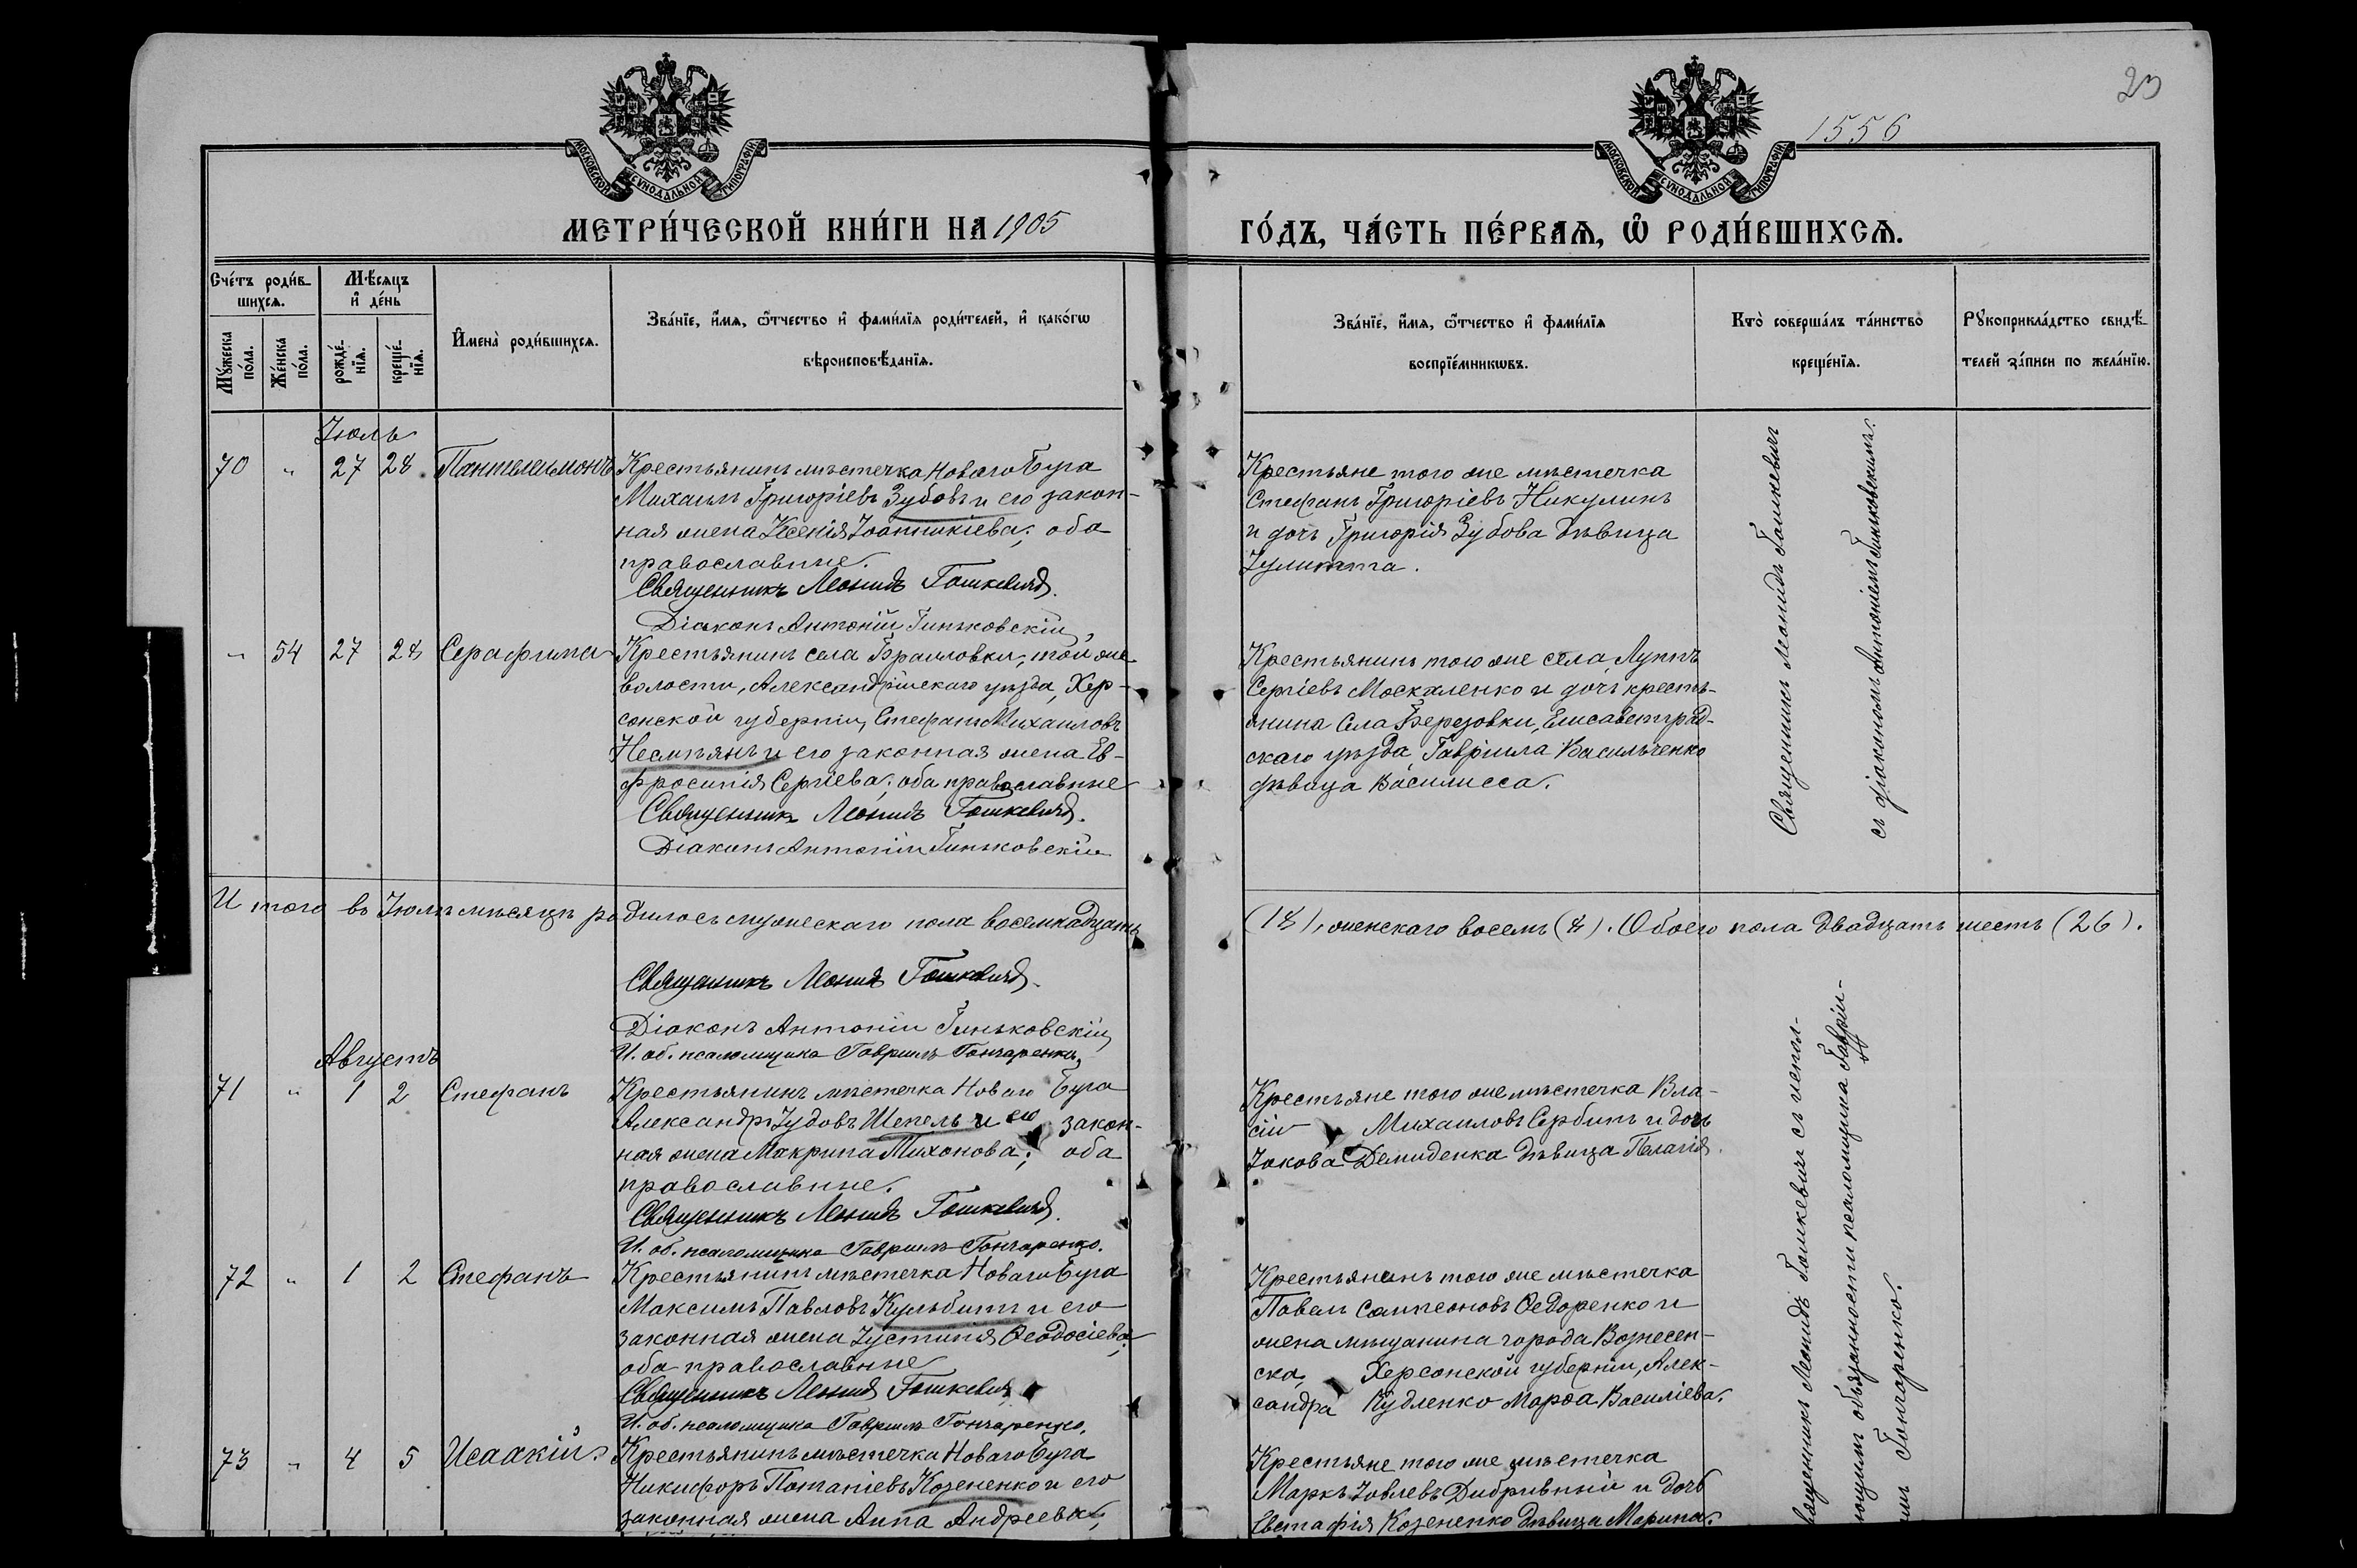 23
1556
МОСКОВСКОЙ СѴНОДАЛЬНОЙ ТИПОГРАФІИ
МОСКОВСКОЙ СѴНОДАЛЬНОЙ ТИПОГРАФІИ
МЕТРИ́ЧЕСКОЙ КНИ́ГИ НА 1905
ГО́ДЪ, ЧА́СТЬ ПЕ́РВАѦ, Ѡ҆ РОДИ́ВШИХСѦ.
Счéтъ роди́в-
шихсѧ.
Мꙋ́жеска
по́ла.
Же́нска
по́ла.
Мѣ́сѧцъ
и҆ де́нь
рожде́-
нїѧ.
креще́-
нїѧ.
И҆мена̀ роди́вшихсѧ.
Зва́нїе, и҆́мѧ, ѻ҆́тчество и҆ фами́лїѧ роди́телей, и҆ како́гѡ
вѣроисповѣ́данїѧ.
Зва́нїе, и҆́мѧ, ѻ҆́тчество и҆ фами́лїѧ
воспрїе́мникѡвъ.
Кто̀ соверша́лъ та́инство
креще́нїѧ.
Рꙋкоприкла́дство свидѣ́-
телей за́писи по жела́нїю.
Іюль
70 " 27 28 Пантелеимонъ
Крестьянинъ мѣстечка Новаго Буга
Михаилъ Григоріевъ Зубовъ и его закон-
ная жена Ксенія Іоанникіева; оба
православные.
Священникъ Леонидъ Гошкевичъ.
Діаконъ Антоній Гиньковскій
Крестьяне того же мѣстечка
Стефанъ Григоріевъ Никулинъ
и дочь Григорія Зубова дѣвица
Іулитта.
Священникъ Леонидъ Гошкевичъ
съ діакономъ Антоніемъ Гиньковскимъ.
" 54 27 28 Серафима
Крестьянинъ села Браиловки, той же
волости, Александрійскаго уѣзда, Хер-
сонской губерніи, Стефанъ Михаиловъ
Несмѣянъ и его законная жена Ев-
фросинія Сергіева; оба православные
Священникъ Леонидъ Гошкевичъ.
Діаконъ Антоній Гиньковскій
Крестьянинъ того же села Луппъ
Сергіевъ Москаленко и дочь кресть-
янина села Березовки, Елисаветград-
скаго уѣзда, Гавріила Васильченко
дѣвица Василисса.
Итого въ Іюлѣ мѣсяцѣ родилось мужескаго пола восемнадцать
(18), женскаго восемь (8). Обоего пола двадцать шесть (26).
Священникъ Леонидъ Гошкевичъ.
Діаконъ Антоній Гиньковскій
И. об. псаломщика Гавріилъ Гончаренко.
Августъ
71 " 1 2 Стефанъ
Крестьянинъ мѣстечка Новаго Буга
Александръ Іудовъ Шепель и его закон-
ная жена Макрина Тихонова; оба
православные.
Священникъ Леонидъ Гошкевичъ.
И. об. псаломщика Гавріилъ Гончаренко.
Крестьяне того же мѣстечка Вла-
сій Михаиловъ Сербинъ и дочь
Іакова Демиденка дѣвица Пелагія.
Священникъ Леонидъ Гошкевичъ съ испол-
няющимъ обязанности псаломщика Гавріи-
ломъ Гончаренко.
72 " 1 2 Стефанъ
Крестьянинъ мѣстечка Новаго Буга
Максимъ Павловъ Кульбитъ и его
законная жена Іустинія Ѳеодосіева;
оба православные
Священникъ Леонидъ Гошкевичъ
И. об. псаломщика Гавріилъ Гончаренко.
Крестьянинъ того же мѣстечка
Павелъ Сампсоновъ Ѳедоренко и
жена мѣщанина города Вознесен-
ска, Херсонской губерніи, Алек-
сандра Кудленко Марѳа Василіева.
73 " 4 5 Исаакій
Крестьянинъ мѣстечка Новаго Буга
Никифоръ Потапіевъ Козененко и его
законная жена Анна Андреева;
Крестьяне того же мѣстечка
Маркъ Іовлевъ Дибривный и дочь
Евстафія Козененко дѣвица Марина.